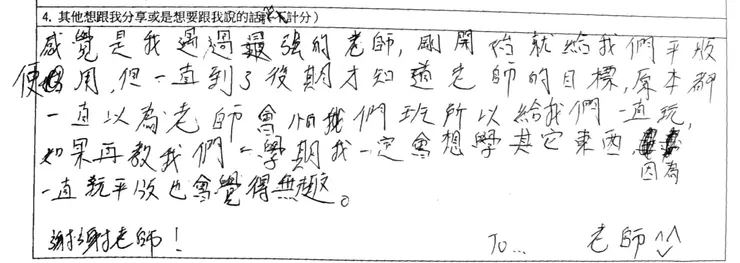 4. 其他想跟我分享或是想要跟我說的話(不計分)
感覺是我遇過最強的老師,剛開始就給我們平板
便用,但一直到了後期才知道老師的目標,原本都
一直以為老師會怕我們班所以給我們一直玩,
如果再教我們一學期我一定會想學其它東西
因為
一直玩平板也會覺得無趣。
謝謝老師!
To... 老師^^